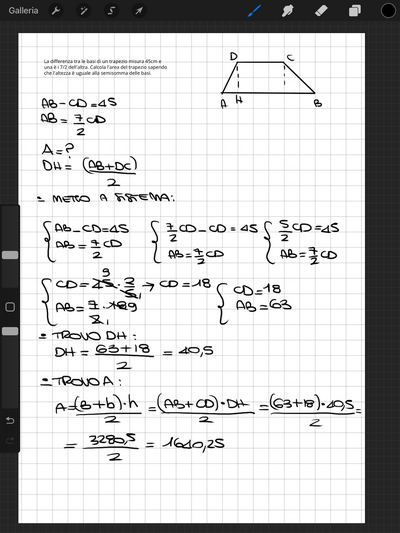 Galleria
La differenza tra le basi di un trapezio misura 45cm e
una è i 7/2 dell'altra. Calcola l'area del trapezio sapendo
che l'altezza è uguale alla semisomma delle basi.
D C
A H B
AB-CD=45
AB=7/2 CD
A=?
DH=(AB+DC)/2
= METTO A SISTEMA:
{AB-CD=45 {7/2 CD-CD=45 {5/2 CD=45
AB=7/2 CD AB=7/2 CD AB=7/2 CD
{CD=45 9 · 2/5 1 → CD=18 {CD=18
AB=7/2 1 · 18 9 AB=63
= TROVO DH:
DH=63+18/2=40,5
= TROVO A:
A=(B+b)·h/2=(AB+CD)·DH/2=(63+18)·40,5/2=
=3280,5/2=1640,25